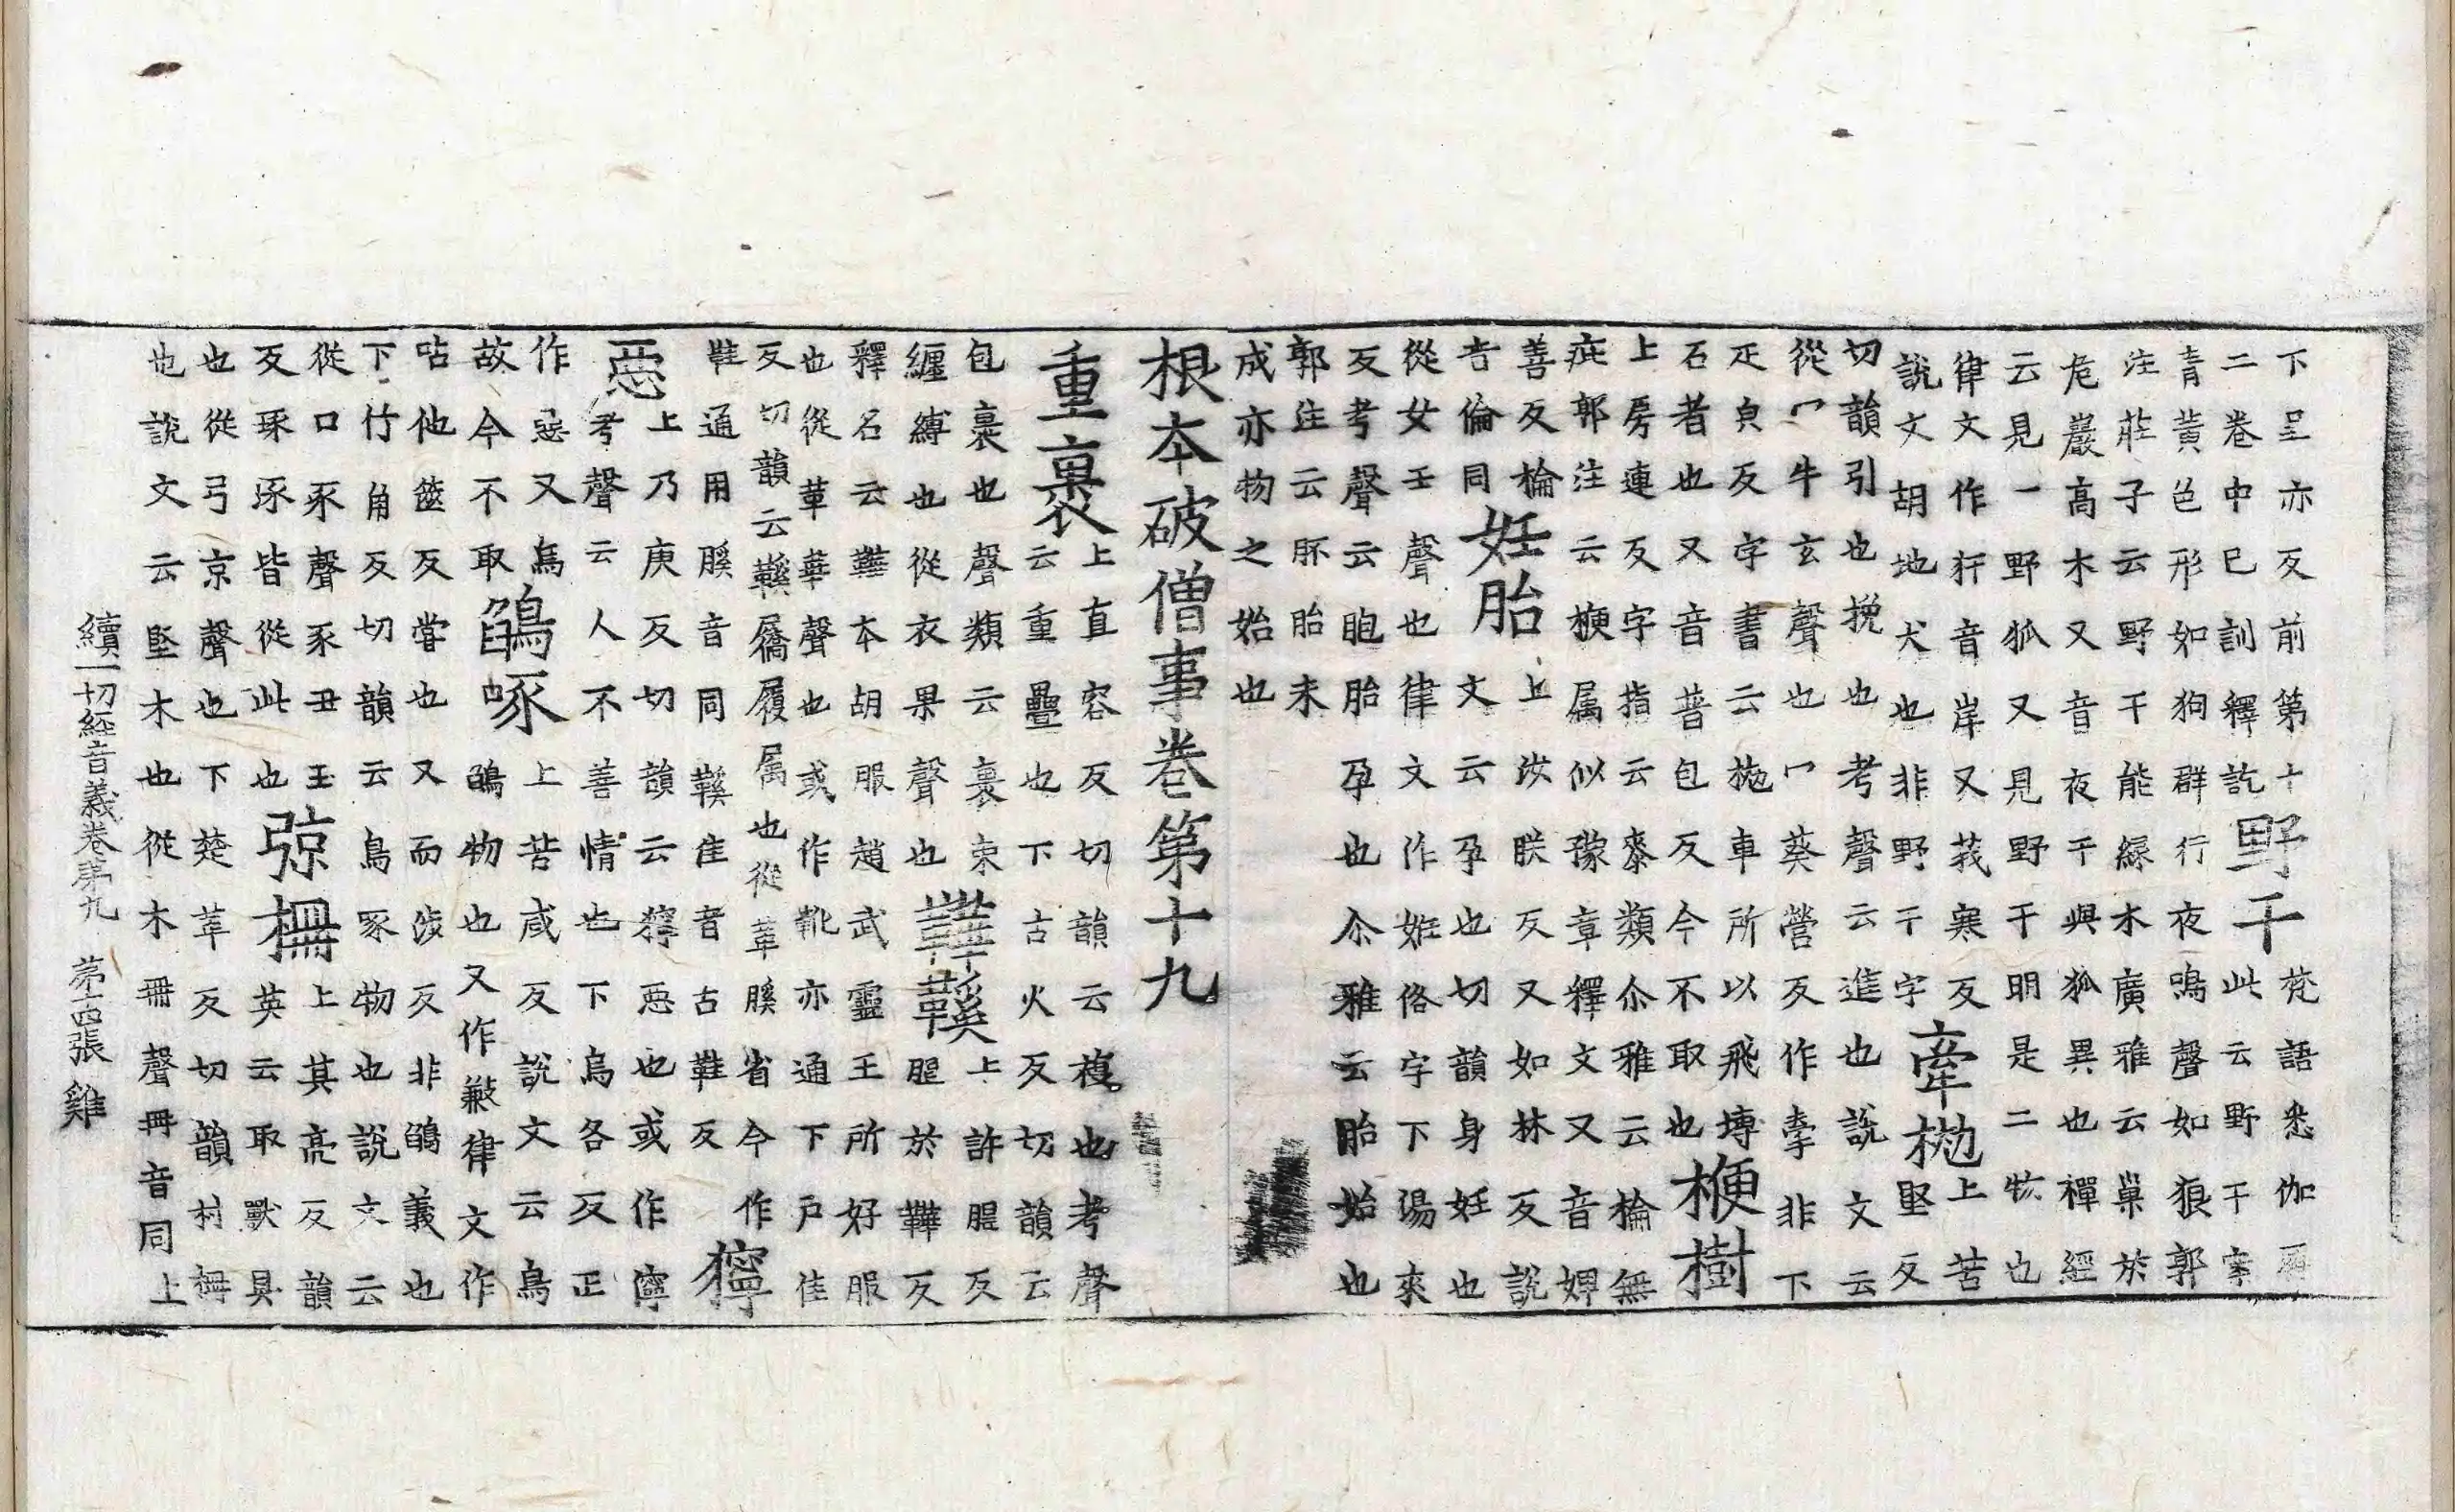 下呈亦反前第十二卷中已訓釋訖野干梵語悉伽此云野干案
青黃色形如狗群行夜鳴聲如狼郭注莊子云野干能緣木廣雅云巢於
危巖高木又音夜干與狐異也禪經云見一野狐又見野干明是二物也
律文作犴音岸又莪寒反說文胡地犬也非野干字牽拋上苦堅反
切韻引也挽也考聲云進也說文云從冖牛玄聲也冖葵營反作牽非下
疋皃反字書云拋車所以飛塼石者也又音普包反今不取也楩樹
上房連反字指云桼類尒雅云棆無疵郭注云楩属似豫章釋文又音婢
善反棆音倫同妊胎上汝朕反又如林反說文云孕也切韻身妊也
從女壬聲也律文作姙俗字下湯來反考聲云胞胎孕也尒雅云胎始也
郭注云胚胎未成亦物之始也
根本破僧事卷第十九
重裹上直容反切韻云複也考聲云重疊也下古火反切韻云
包裹也聲類云裹束纏縛也從衣果聲也鞾鞵上許䏢反䏢於鞾反
釋名云鞾本胡服趙武靈王所好服也從革華聲也或作靴亦通下戶佳
反切韻云鞵屩履属也從革膎省今作鞋通用膎音同鞵佳者古鞋反獰
惡上乃庚反切韻云獰惡也或作㝕考聲云人不善情也下烏各反正
作惡又烏故今不取鵮啄上苦咸反說文云鳥鵮物也又作㪠律文作
呫他篋反甞也又而涉反非鵮義也下竹角反切韻云鳥啄物也說文云
從口豕聲豕丑玉反琢涿皆從此也弶柵上其亮反韻英云取獸具
也從弓京聲也下楚革反切韻村柵也說文云堅木也從木冊聲冊音同上
續一切經音義卷第九 第十四張 雞